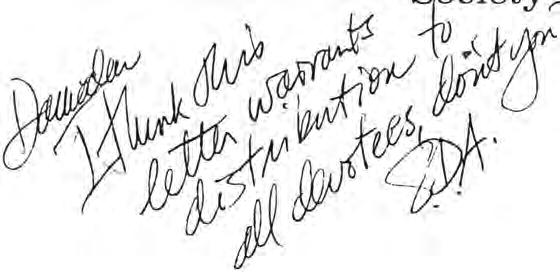 Society
I think this
letter warrants
distribution to
all devotees, don't you
S.D.A.